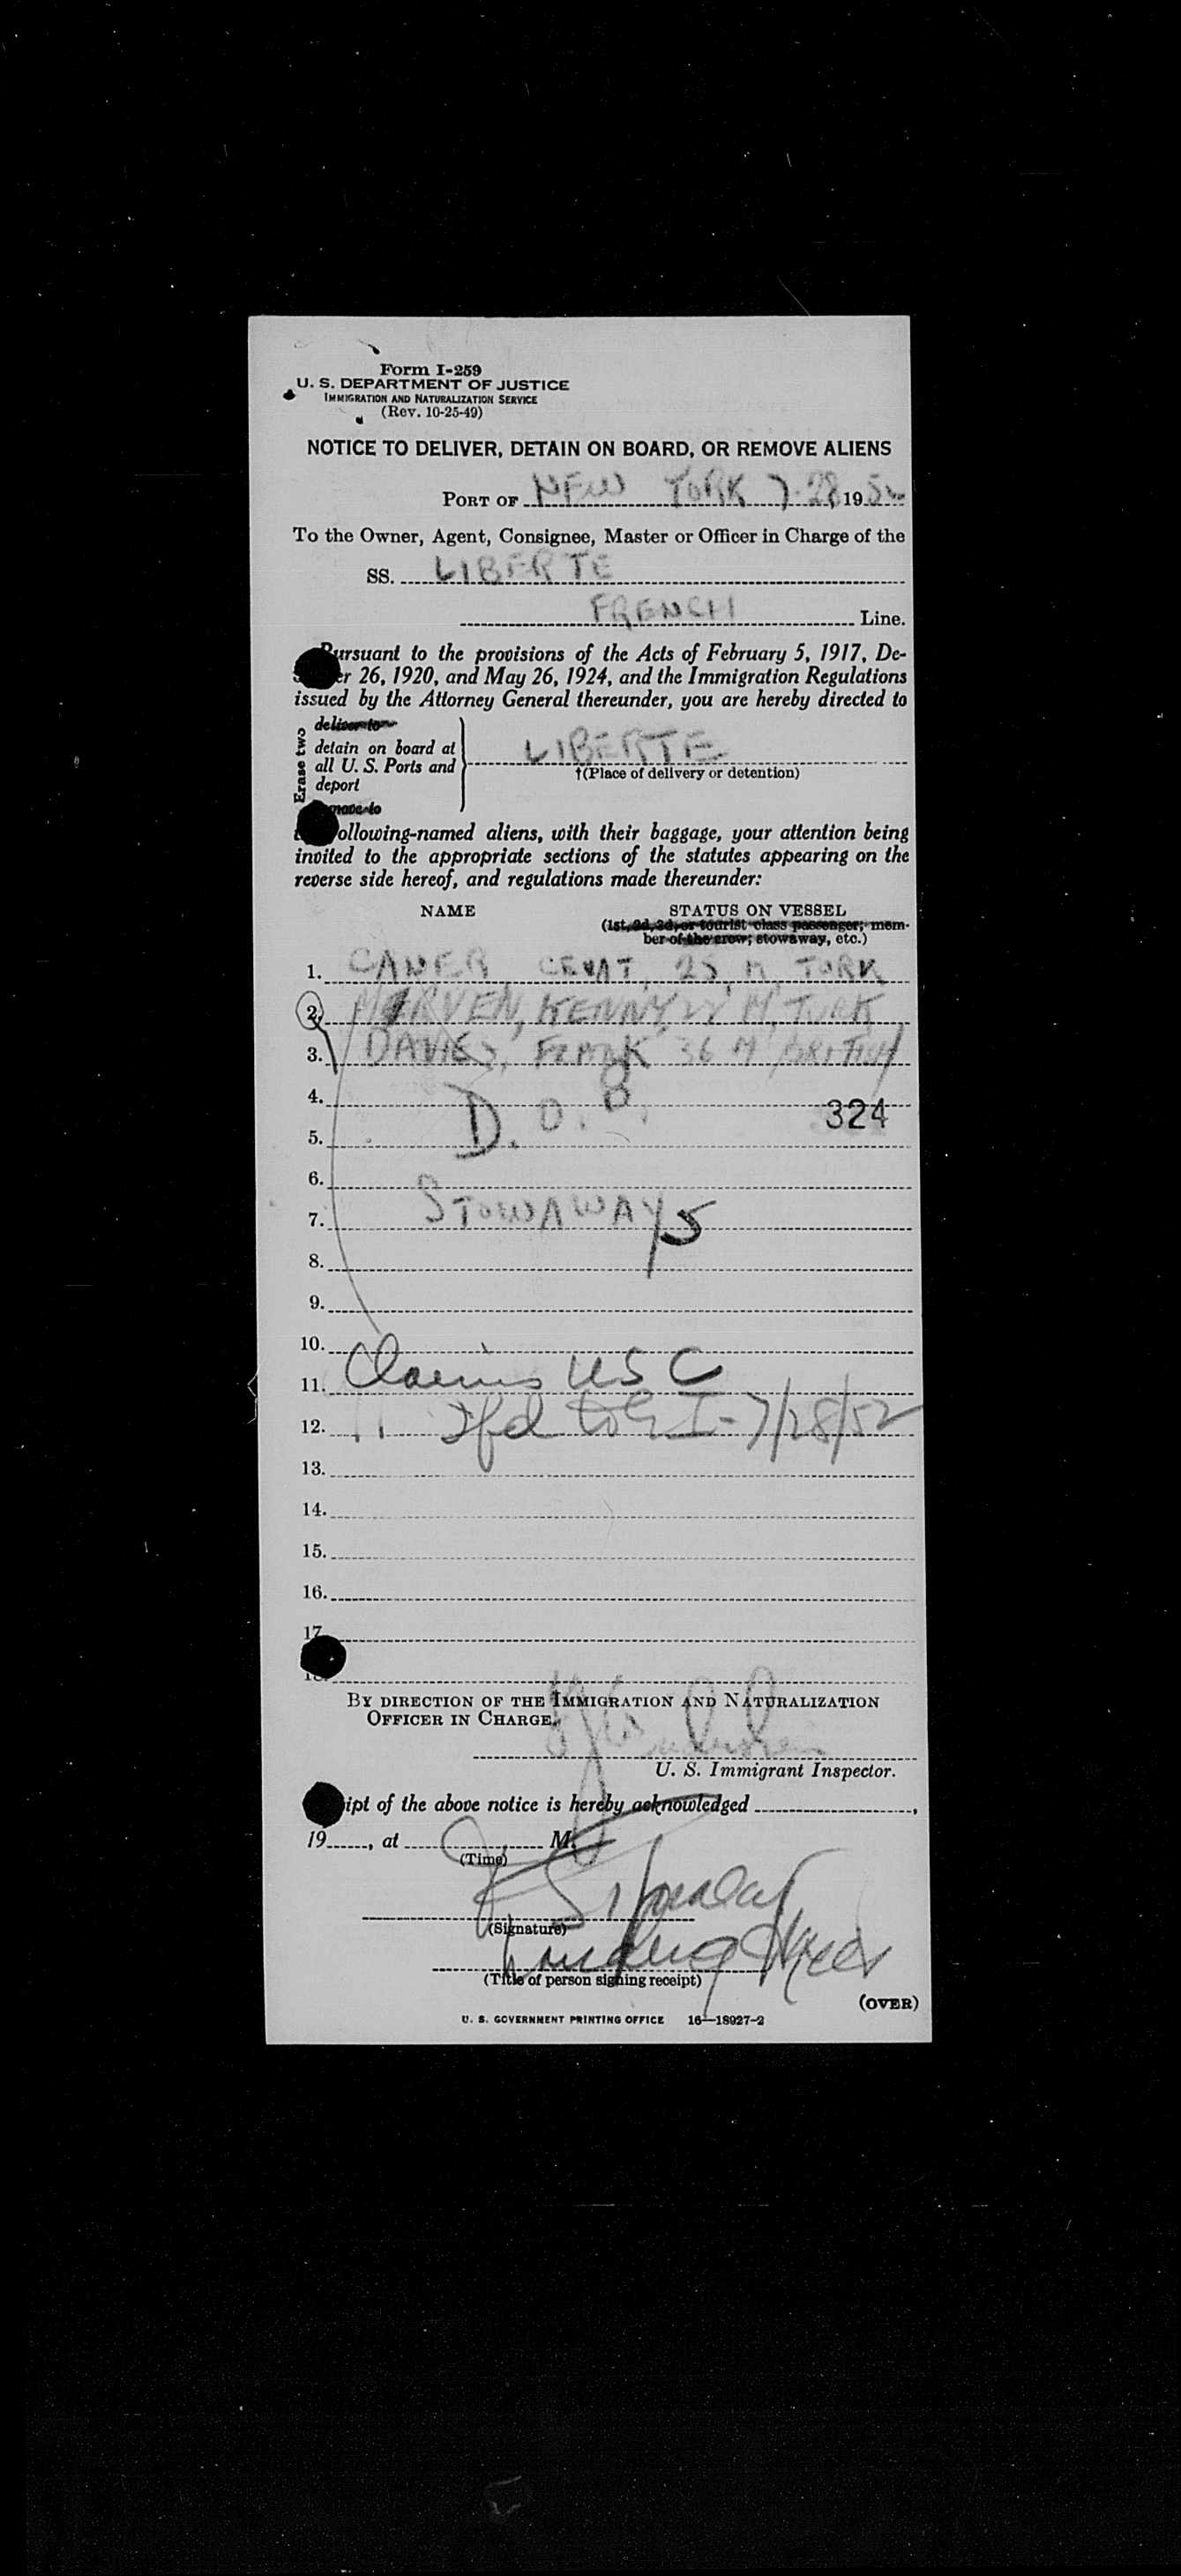 Form I-259
U. S. DEPARTMENT OF JUSTICE
IMMIGRATION AND NATURALIZATION SERVICE
(Rev. 10-25-49)
NOTICE TO DELIVER, DETAIN ON BOARD, OR REMOVE ALIENS
PORT OF NEW YORK 7-28 1952
To the Owner, Agent, Consignee, Master or Officer in Charge of the
SS. LIBERTE
FRENCH Line.
Pursuant to the provisions of the Acts of February 5, 1917, De-
er 26, 1920, and May 26, 1924, and the Immigration Regulations
issued by the Attorney General thereunder, you are hereby directed to
Erase two
deliver to
detain on board at
all U. S. Ports and
deport
move to
LIBERTE
†(Place of delivery or detention)
ollowing-named aliens, with their baggage, your attention being
invited to the appropriate sections of the statutes appearing on the
reverse side hereof, and regulations made thereunder:
NAME STATUS ON VESSEL
(1st, 2d, 3d, or tourist class passenger; mem-
ber of the crew; stowaway, etc.)
1. CANER CEVAT, 25, M, TURK
2. KENNY 22 M, TURK
3. DAVIES, FRANK 36 M BRITISH
4. D. O. B. 324
5.
6.
7. STOWAWAYS
8.
9.
10.
11. Claims USC
12. 7/28/52
13.
14.
15.
16.
17.
BY DIRECTION OF THE IMMIGRATION AND NATURALIZATION
OFFICER IN CHARGE.
U. S. Immigrant Inspector.
ipt of the above notice is hereby acknowledged ,
19 , at M.
(Time)
(Signature)
Landing Officer
(Title of person signing receipt)
(OVER)
U. S. GOVERNMENT PRINTING OFFICE 16—18927-2